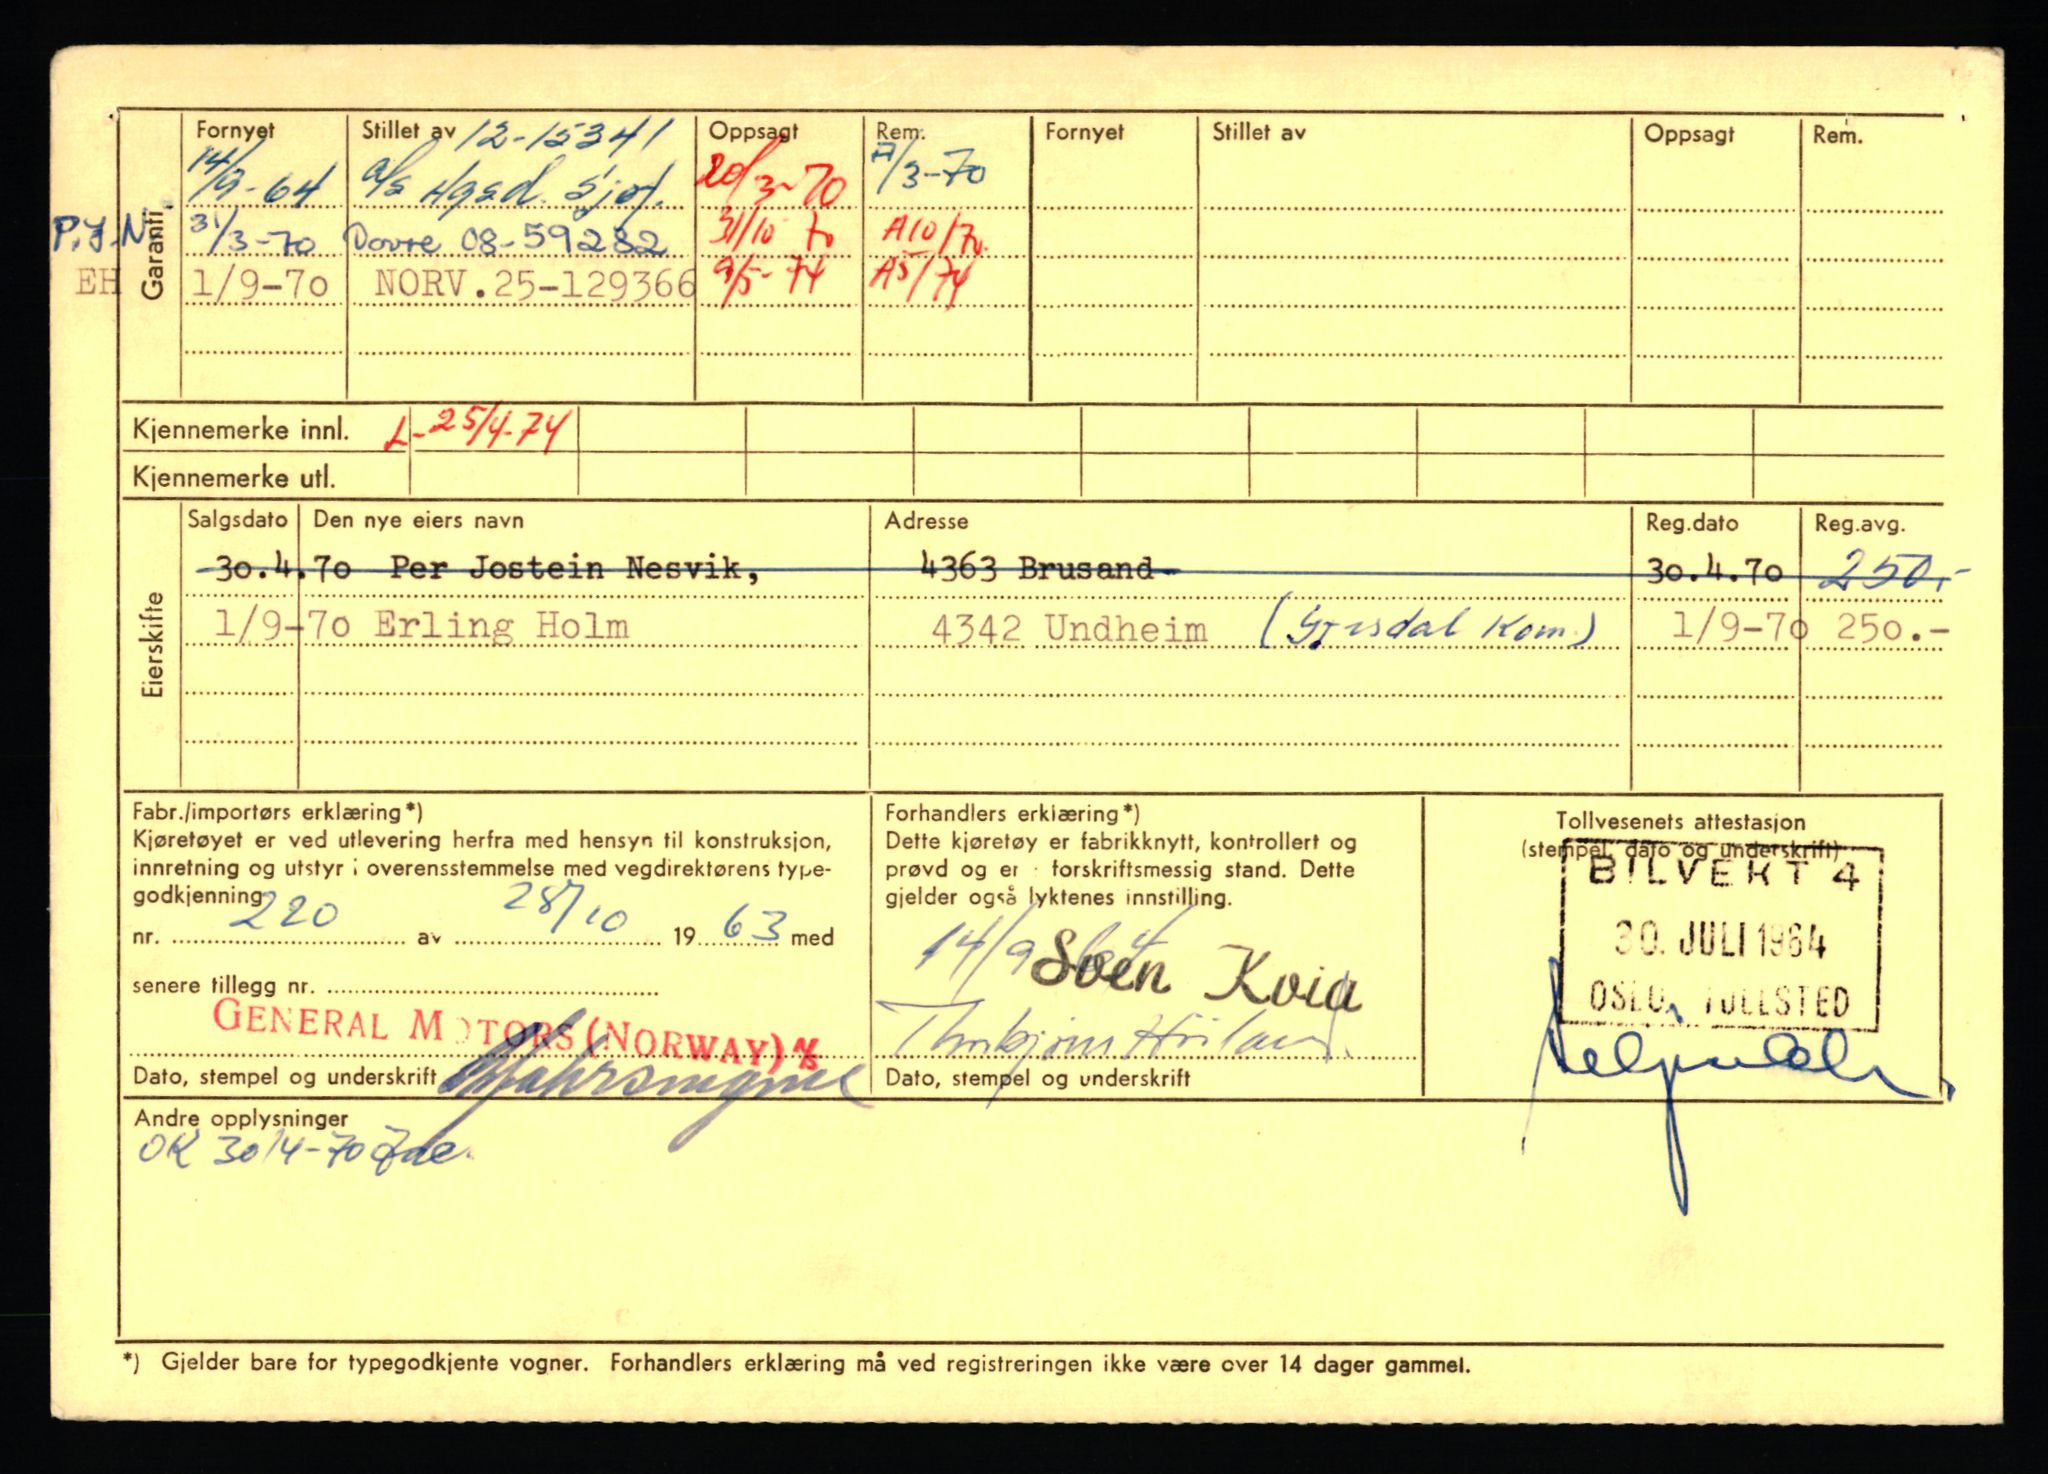 Garanti
Fornyet Stillet av 12-15341 Oppsagt Rem. Fornyet Stillet av Oppsagt Rem.
14/9-64 a/s Agsd. Sjøf. 20/3-70 A/3-70
P.J.N. 31/3-70 Dovre 08-59282 31/10 70 A10/70.
EH 1/9-70 NORV.25-129366 9/5-74 A5/74
Kjennemerke innl. L-25/4-74
Kjennemerke utl.
Eierskifte
Salgsdato Den nye eiers navn Adresse Reg.dato Reg.avg.
30.4.70 Per Jostein Nesvik, 4363 Brusand 30.4.70 250,-
1/9-70 Erling Holm 4342 Undheim (Gjesdal Kom.) 1/9-70 250.-
Fabr./importørs erklæring*)
Kjøretøyet er ved utlevering herfra med hensyn til konstruksjon,
innretning og utstyr i overensstemmelse med vegdirektørens type-
godkjenning
nr. 220 av 28/10 1963 med
senere tillegg nr.
GENERAL MOTORS (NORWAY) A/S
Dato, stempel og underskrift
Forhandlers erklæring*)
Dette kjøretøy er fabrikknytt, kontrollert og
prøvd og er i forskriftsmessig stand. Dette
gjelder også lyktenes innstilling.
14/9 64 Sven Kvia
Thorbjørn Høiland
Dato, stempel og underskrift
Tollvesenets attestasjon
(stempel, dato og underskrift)
BILVEKT 4
30. JULI 1964
OSLO TOLLSTED
Andre opplysninger
OK 30/4-70
*) Gjelder bare for typegodkjente vogner. Forhandlers erklæring må ved registreringen ikke være over 14 dager gammel.